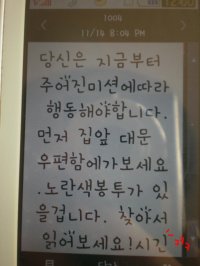 12:00
1004
11/14 8:04 PM
당신은 지금부터
주어진미션에따라
행동해야합니다.
먼저 집앞 대문
우편함에가보세요
.노란색봉투가 있
을겁니다. 찾아서
읽어보세요!시간